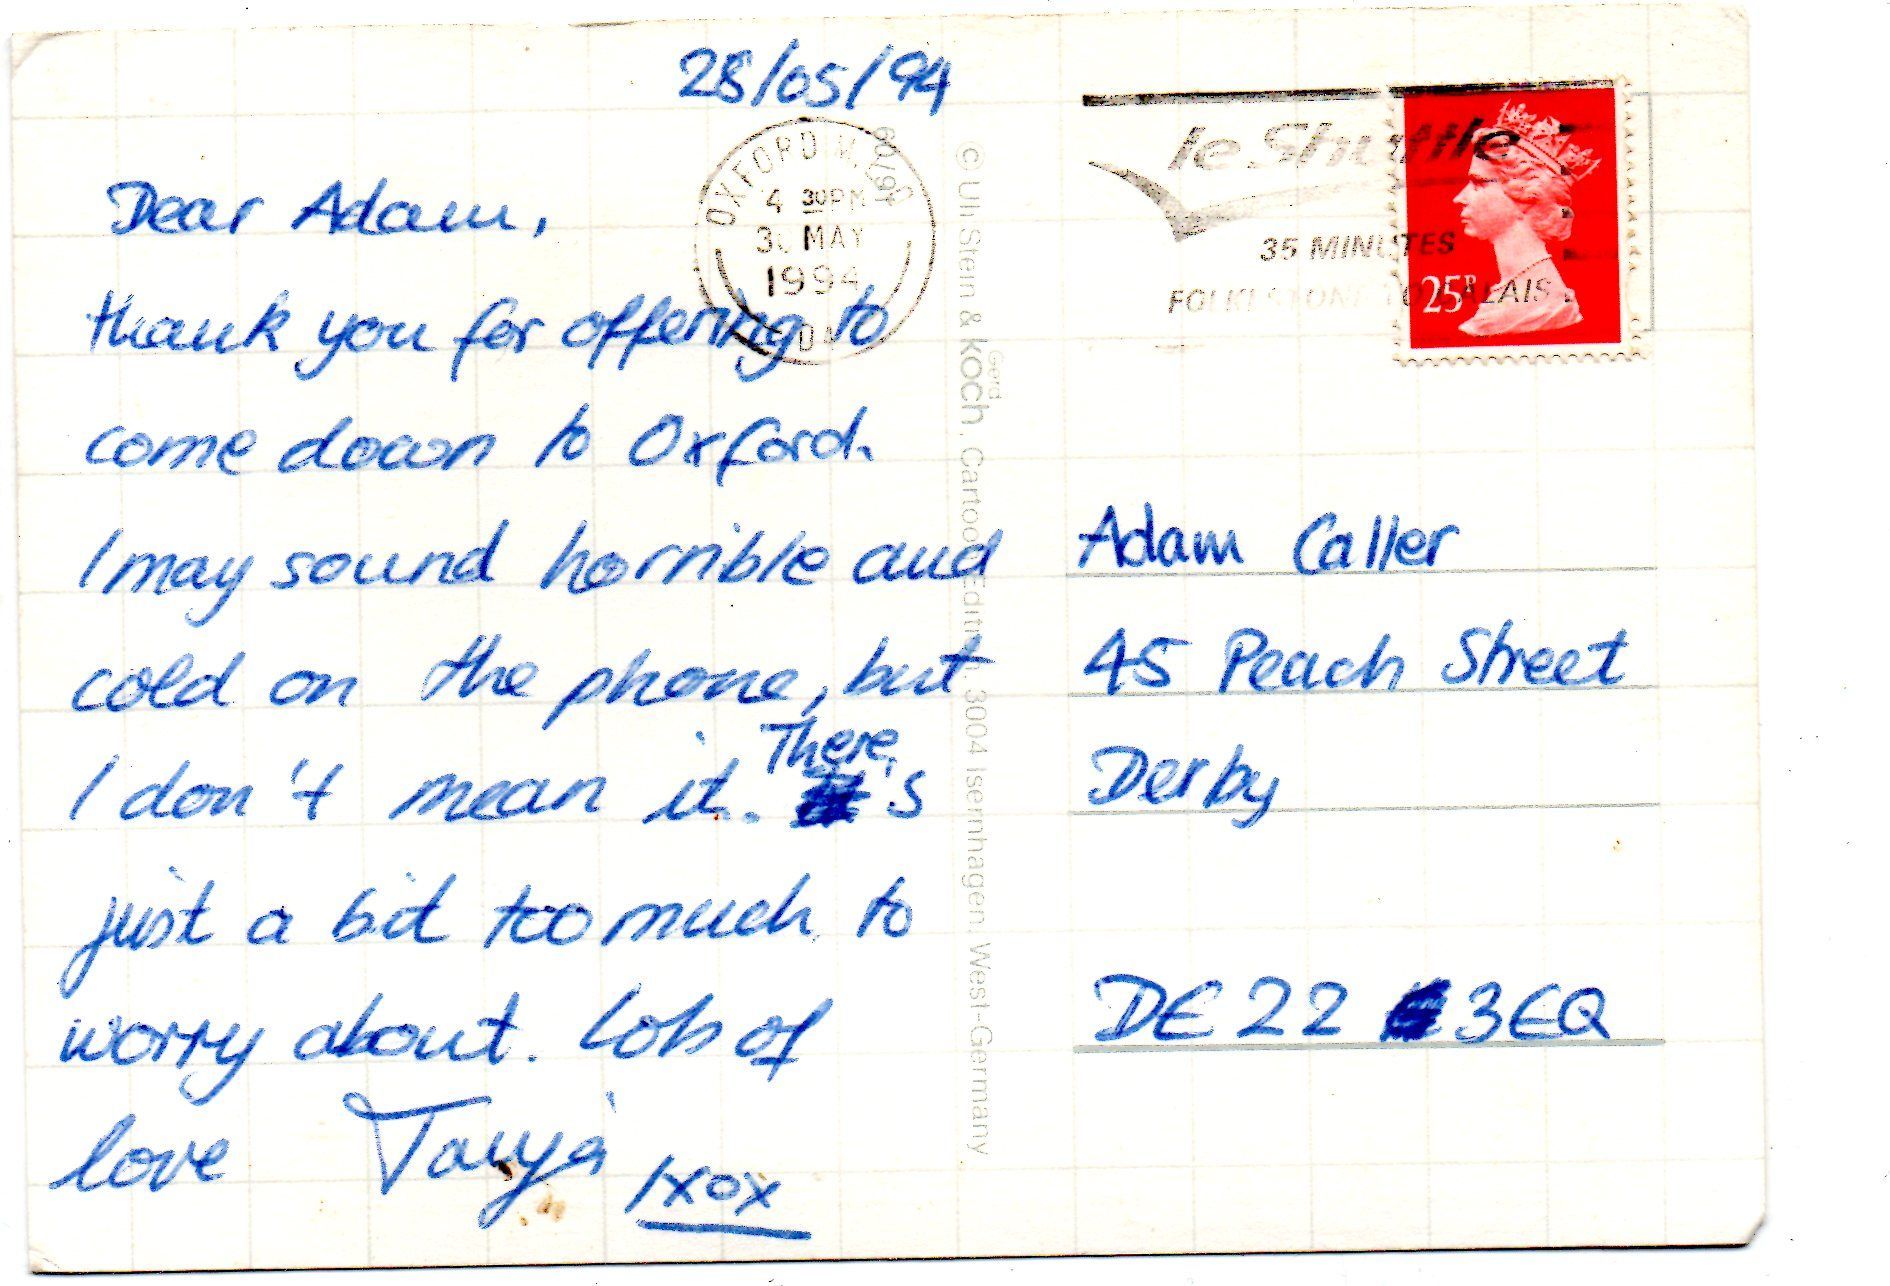 28/05/94
Dear Adam,
thank you for offering to
come down to Oxford.
I may sound horrible and
cold on the phone, but
I don't mean it. There's
just a bit too much to
worry about. Lots of
love Tanja
xox
OXFORD
4 30PM
MAY
1994
le Shuttle
35 MINUTES
FOLKESTONE TO CALAIS
25P
60/94
© Uli Stein & Gerd Koch, Cartoon Edition, 3004 Isernhagen, West-Germany
Adam Caller
45 Peach Street
Derby
DE22 3EQ